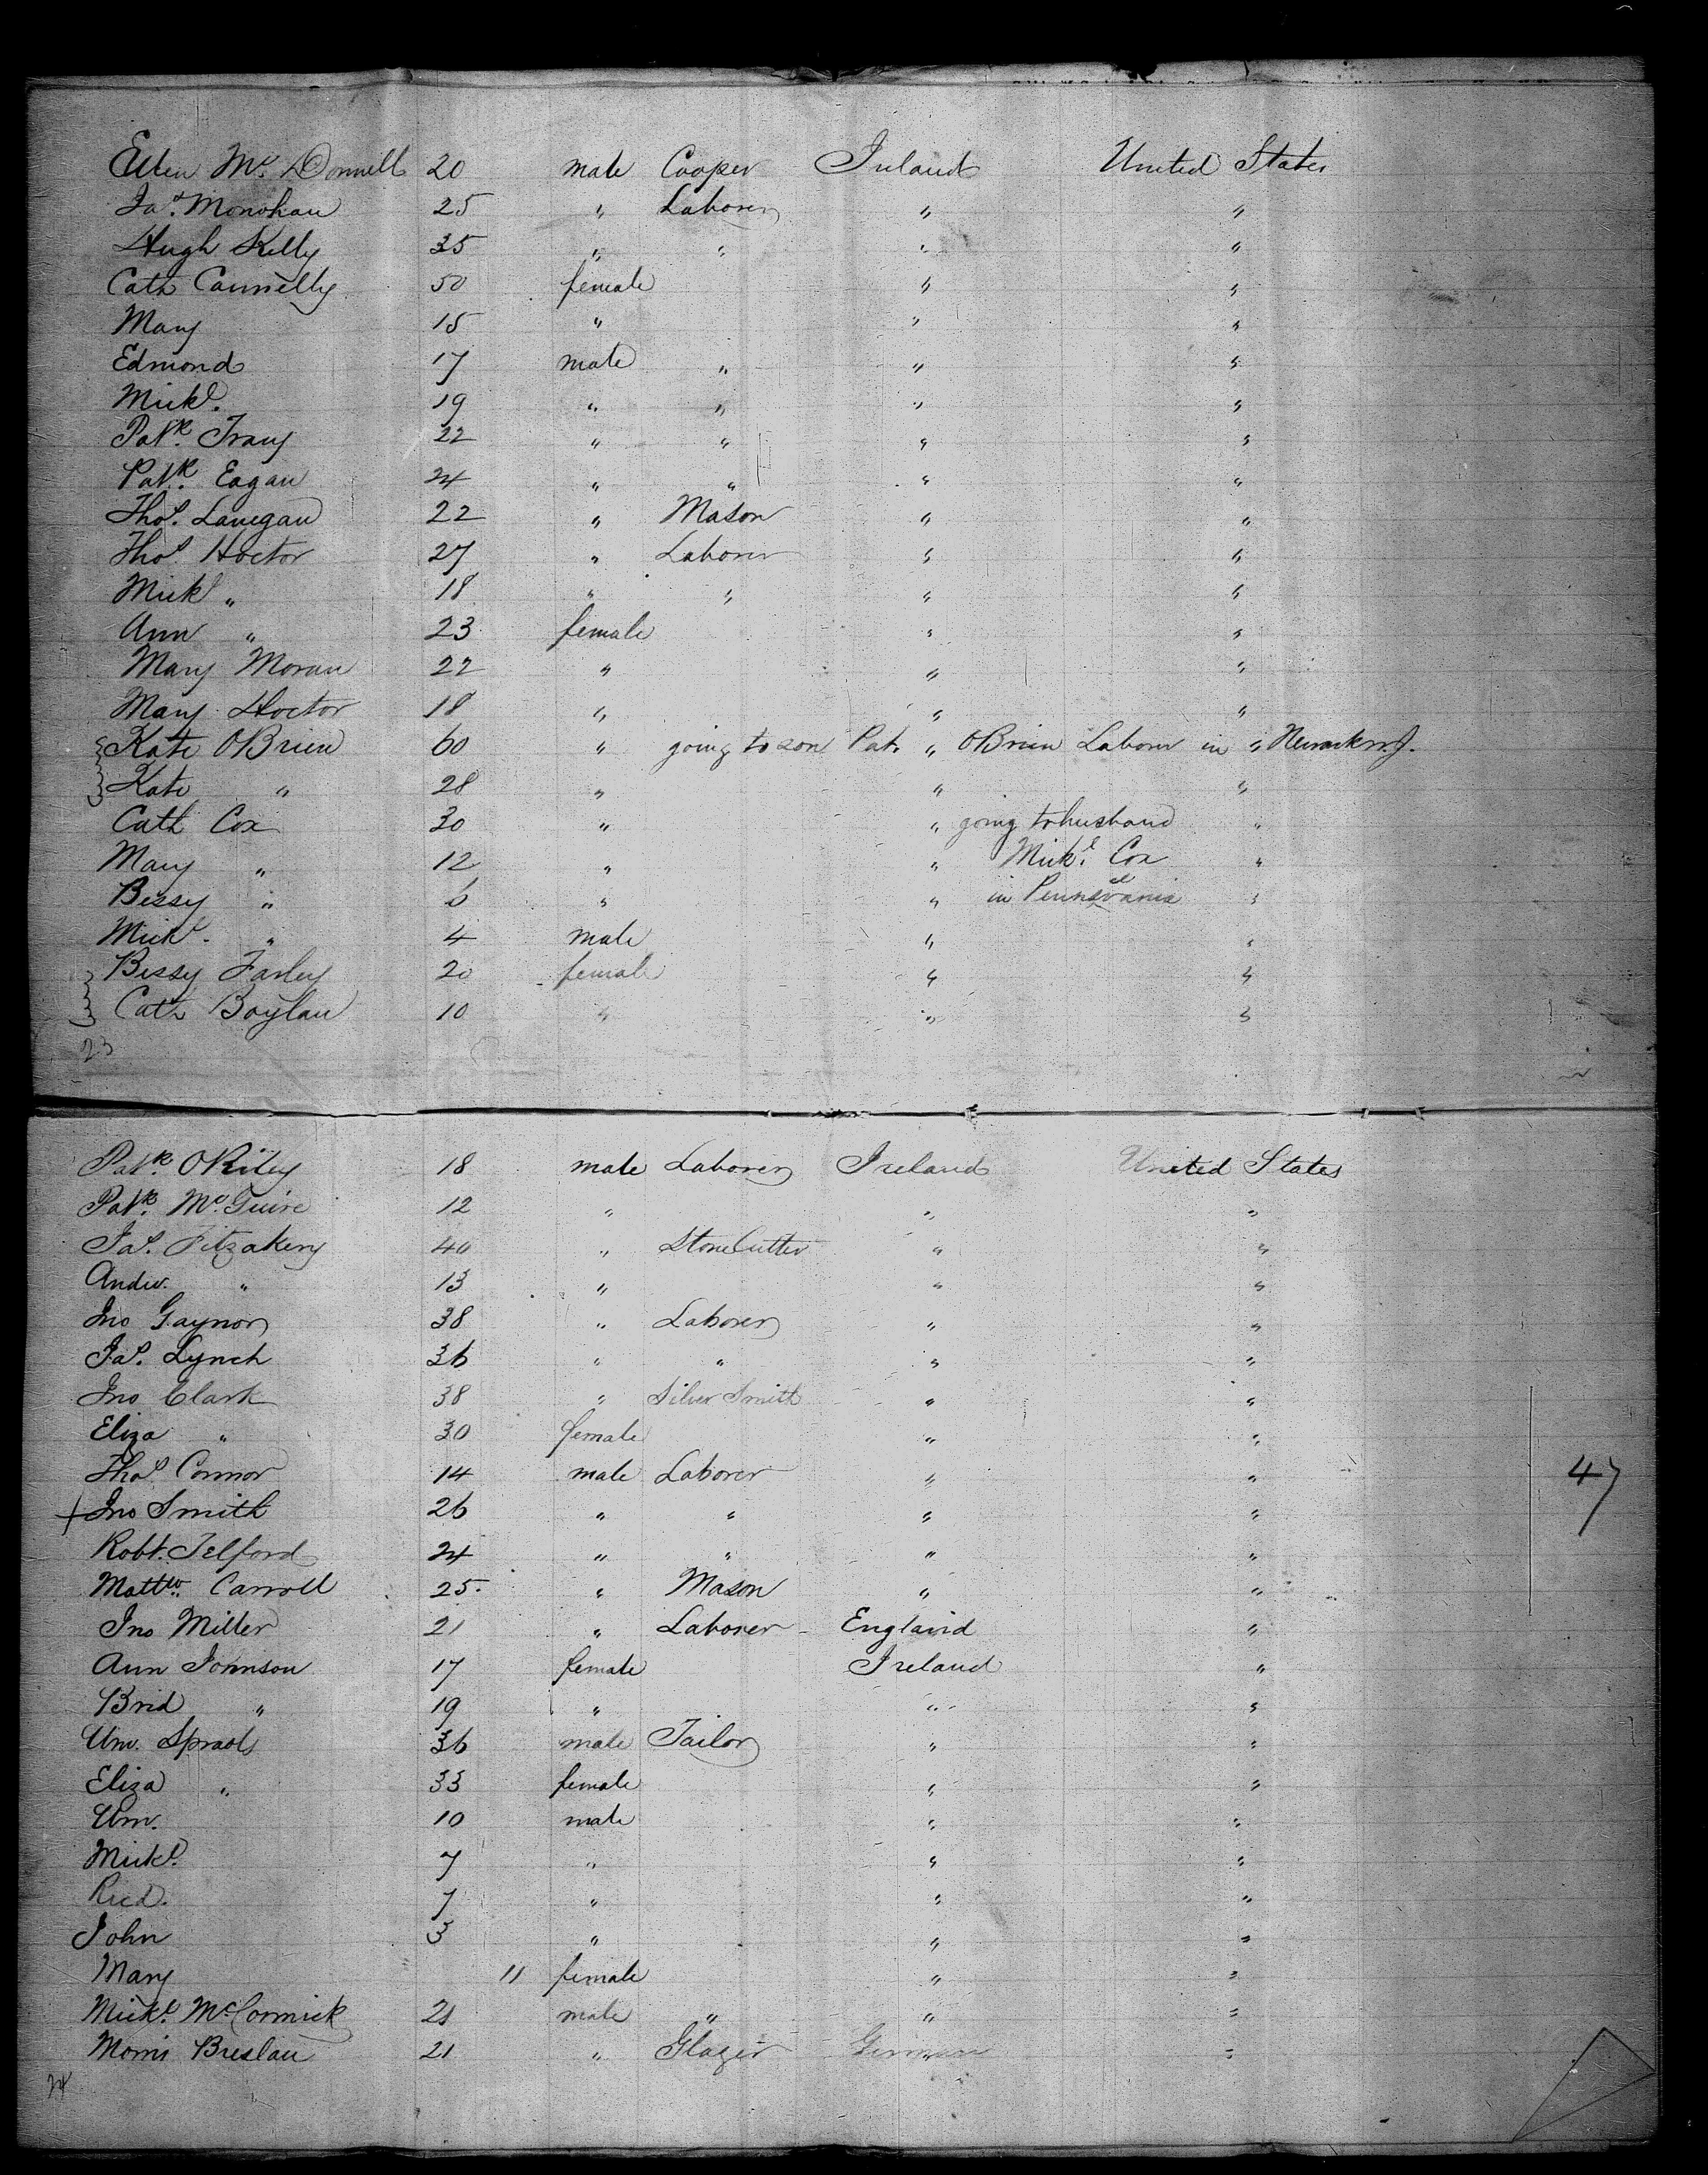 Ellen Mc Donnell 20 male Cooper Ireland United States
Jas. Monohan 25 " Laborer " "
Hugh Kelly 35 " " " "
Cath Connelly 50 female " "
Mary 15 " " "
Edmond 17 male " " "
Mickl. 19 " " " "
Patk. Tracy 22 " " " "
Patk. Eagan 24 " " " "
Thos. Lanegan 22 " Mason " "
Thos. Hoctor 27 " Laborer " "
Mickl " 18 " " " "
Ann " 23 female " "
Mary Moran 22 " " "
Mary Hoctor 18 " " "
Kate OBrien 60 " going to son Pat. " OBrien Laborer in " Newark N.J.
Kate " 28 " " "
Cath Cox 30 " " going to husband "
Mary " 12 " " Mickl. Cox "
Bessy " 6 " " in Pennsylvania "
Mickl. " 4 male " "
Bessy Farley 20 female " "
Cath Boylan 10 " " "
23
Patk. ORiley 18 male Laborer Ireland United States
Patk. Mc Guire 12 " " "
Jas. Fitzakery 40 " Stone Cutter " "
Andw. " 13 " " "
Jno Gaynor 38 " Laborer " "
Jas. Lynch 36 " " " "
Jno Clark 38 " Silver Smith " "
Eliza " 30 female " "
Thos Connor 14 male Laborer " "
47
+ Jno Smith 26 " " " "
Robt. Telford 24 " " " "
Mattw. Carroll 25. " Mason " "
Jno Miller 21 " Laborer England "
Ann Johnson 17 female Ireland "
Brid " 19 " " "
Wm. Spraols 36 male Tailor " "
Eliza " 33 female " "
Wm. 10 male " "
Mickl. 7 " " "
Ricd. 7 " " "
John 3 " " "
Mary 11 female " "
Mickl. McCormick 21 male " " "
Morris Breslau 21 " Glazier German "
24